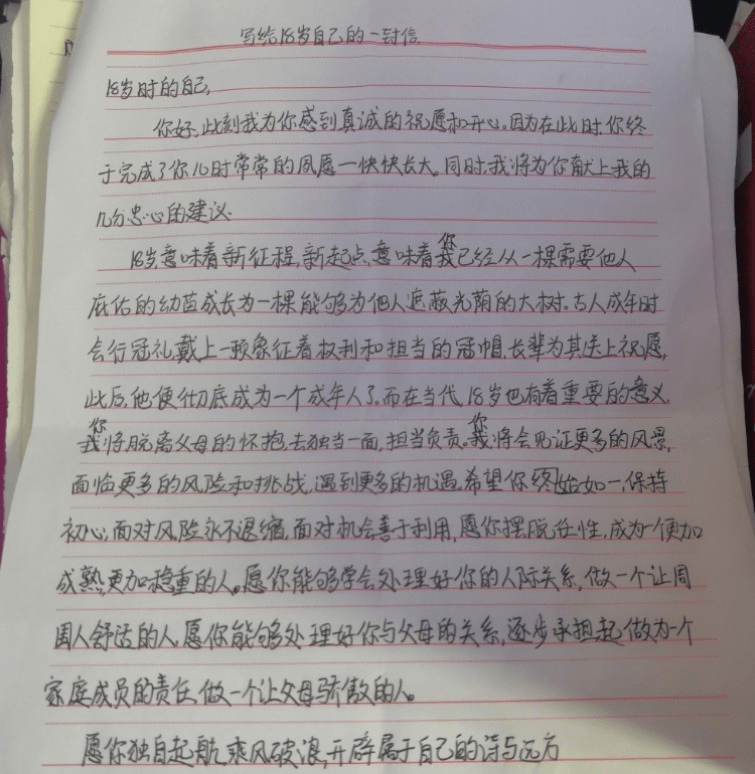 写给18岁自己的一封信.
18岁时的自己,
你好,此刻我为你感到真诚的祝愿和开心。因为在此时,你终
于完成了你儿时常常的夙愿一快快长大。同时,我将为你献上我的
几分忠心的建议.
18岁,意味着新征程,新起点,意味着您已经从一棵需要他人
庇佑的幼苗成长为一棵能够为他人遮蔽光荫的大树.古人成年时
会行冠礼,戴上一顶象征着权利和担当的冠帽,长辈为其送上祝愿,
此后,他便彻底成为一个成年人了.而在当代,18岁也有着重要的意义.
你将脱离父母的怀抱,去独当一面,担当负责。你将会见证更多的风景,
面临更多的风险和挑战,遇到更多的机遇.希望你终始如一,保持
初心,面对风险永不退缩,面对机会善于利用,愿你摆脱任性,成为一个更加
成熟,更加稳重的人。愿你能够学会处理好你的人际关系,做一个让周
围人舒适的人.愿你能够处理好你与父母的关系,逐步承担起做为一个
家庭成员的责任,做一个让父母骄傲的人。
愿你独自起航,乘风破浪,开辟属于自己的诗与远方